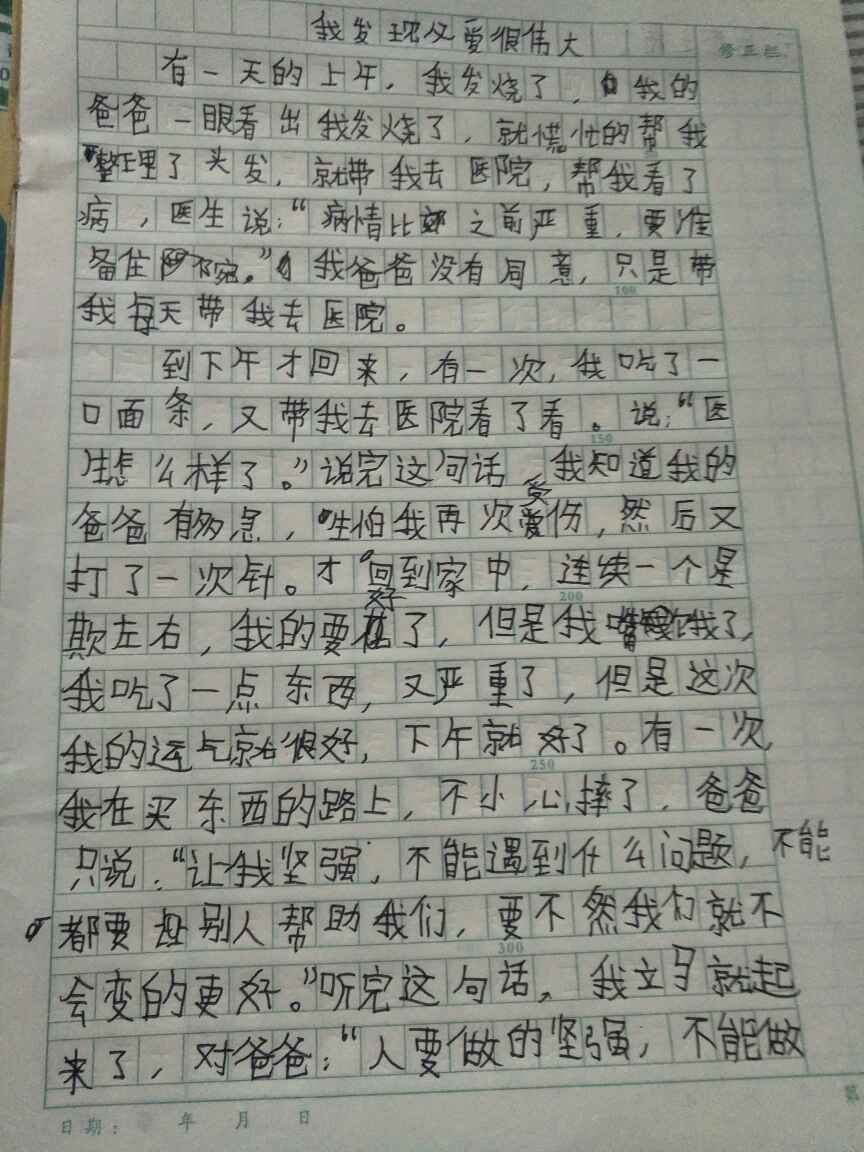 我发现父爱很伟大
修正栏
有一天的上午，我发烧了，我的
爸爸一眼看出我发烧了，就慌忙的帮我
整理了头发，就带我去医院，帮我看了
病，医生说：“病情比之前严重，要准
备住院。”我爸爸没有同意，只是带
100
我每天带我去医院。
到下午才回来，有一次，我吃了一
口面条，又带我去医院看了看。说：“医
150
生怎么样了。”说完这句话，我知道我的
爸爸有多急，生怕我再次受伤，然后又
打了一次针。才回到家中，连续一个星
200
欺左右，我的要好了，但是我饿了，
我吃了一点东西，又严重了，但是这次
我的运气就很好，下午就好了。有一次，
250
我在买东西的路上，不小心摔了，爸爸
只说：“让我坚强，不能遇到什么问题，不能
都要让别人帮助我们，要不然我们就不
300
会变的更好。”听完这句话，我立马就起
来了，对爸爸：“人要做的坚强，不能做
日期： 年 月 日
第